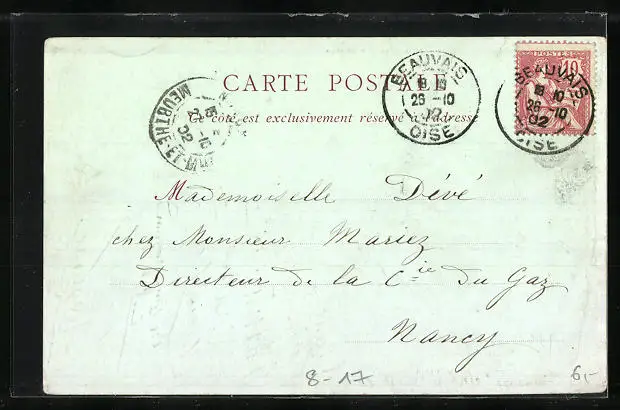 CARTE POSTALE
Ce côté est exclusivement réservé à l'adresse
POSTES
10
BEAUVAIS
26 -10
02
OISE
BEAUVAIS
10
26 -10
02
OISE
MEURTHE-ET-M
02
Mademoiselle Dévé
chez Monsieur Mariez
Directeur de la Cie du Gaz
Nancy
8-17
6,-